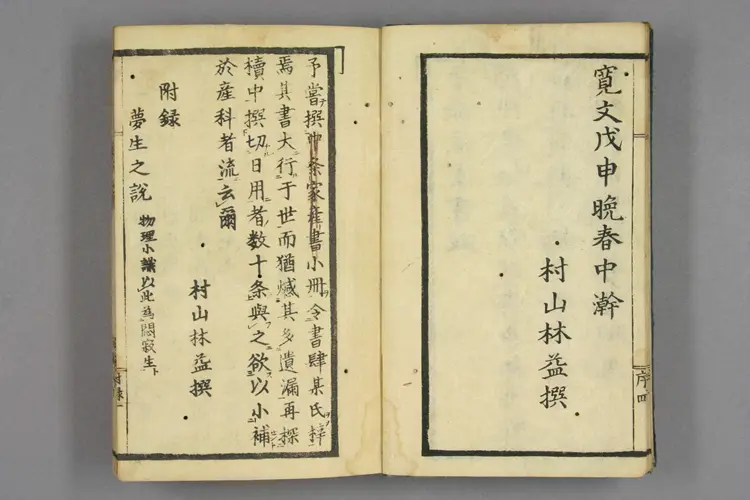 寛文戊申晩春中澣
村山林益撰
序四
予嘗撰中条家産書小冊令書肆某氏梓
焉其書大行于世而猶憾其多遺漏再探
櫝中撰切日用者数十条與之欲以小補
於産科者流云爾
村山林益撰
附録
夢生之説 物理小識以此為悶寂生
附録一